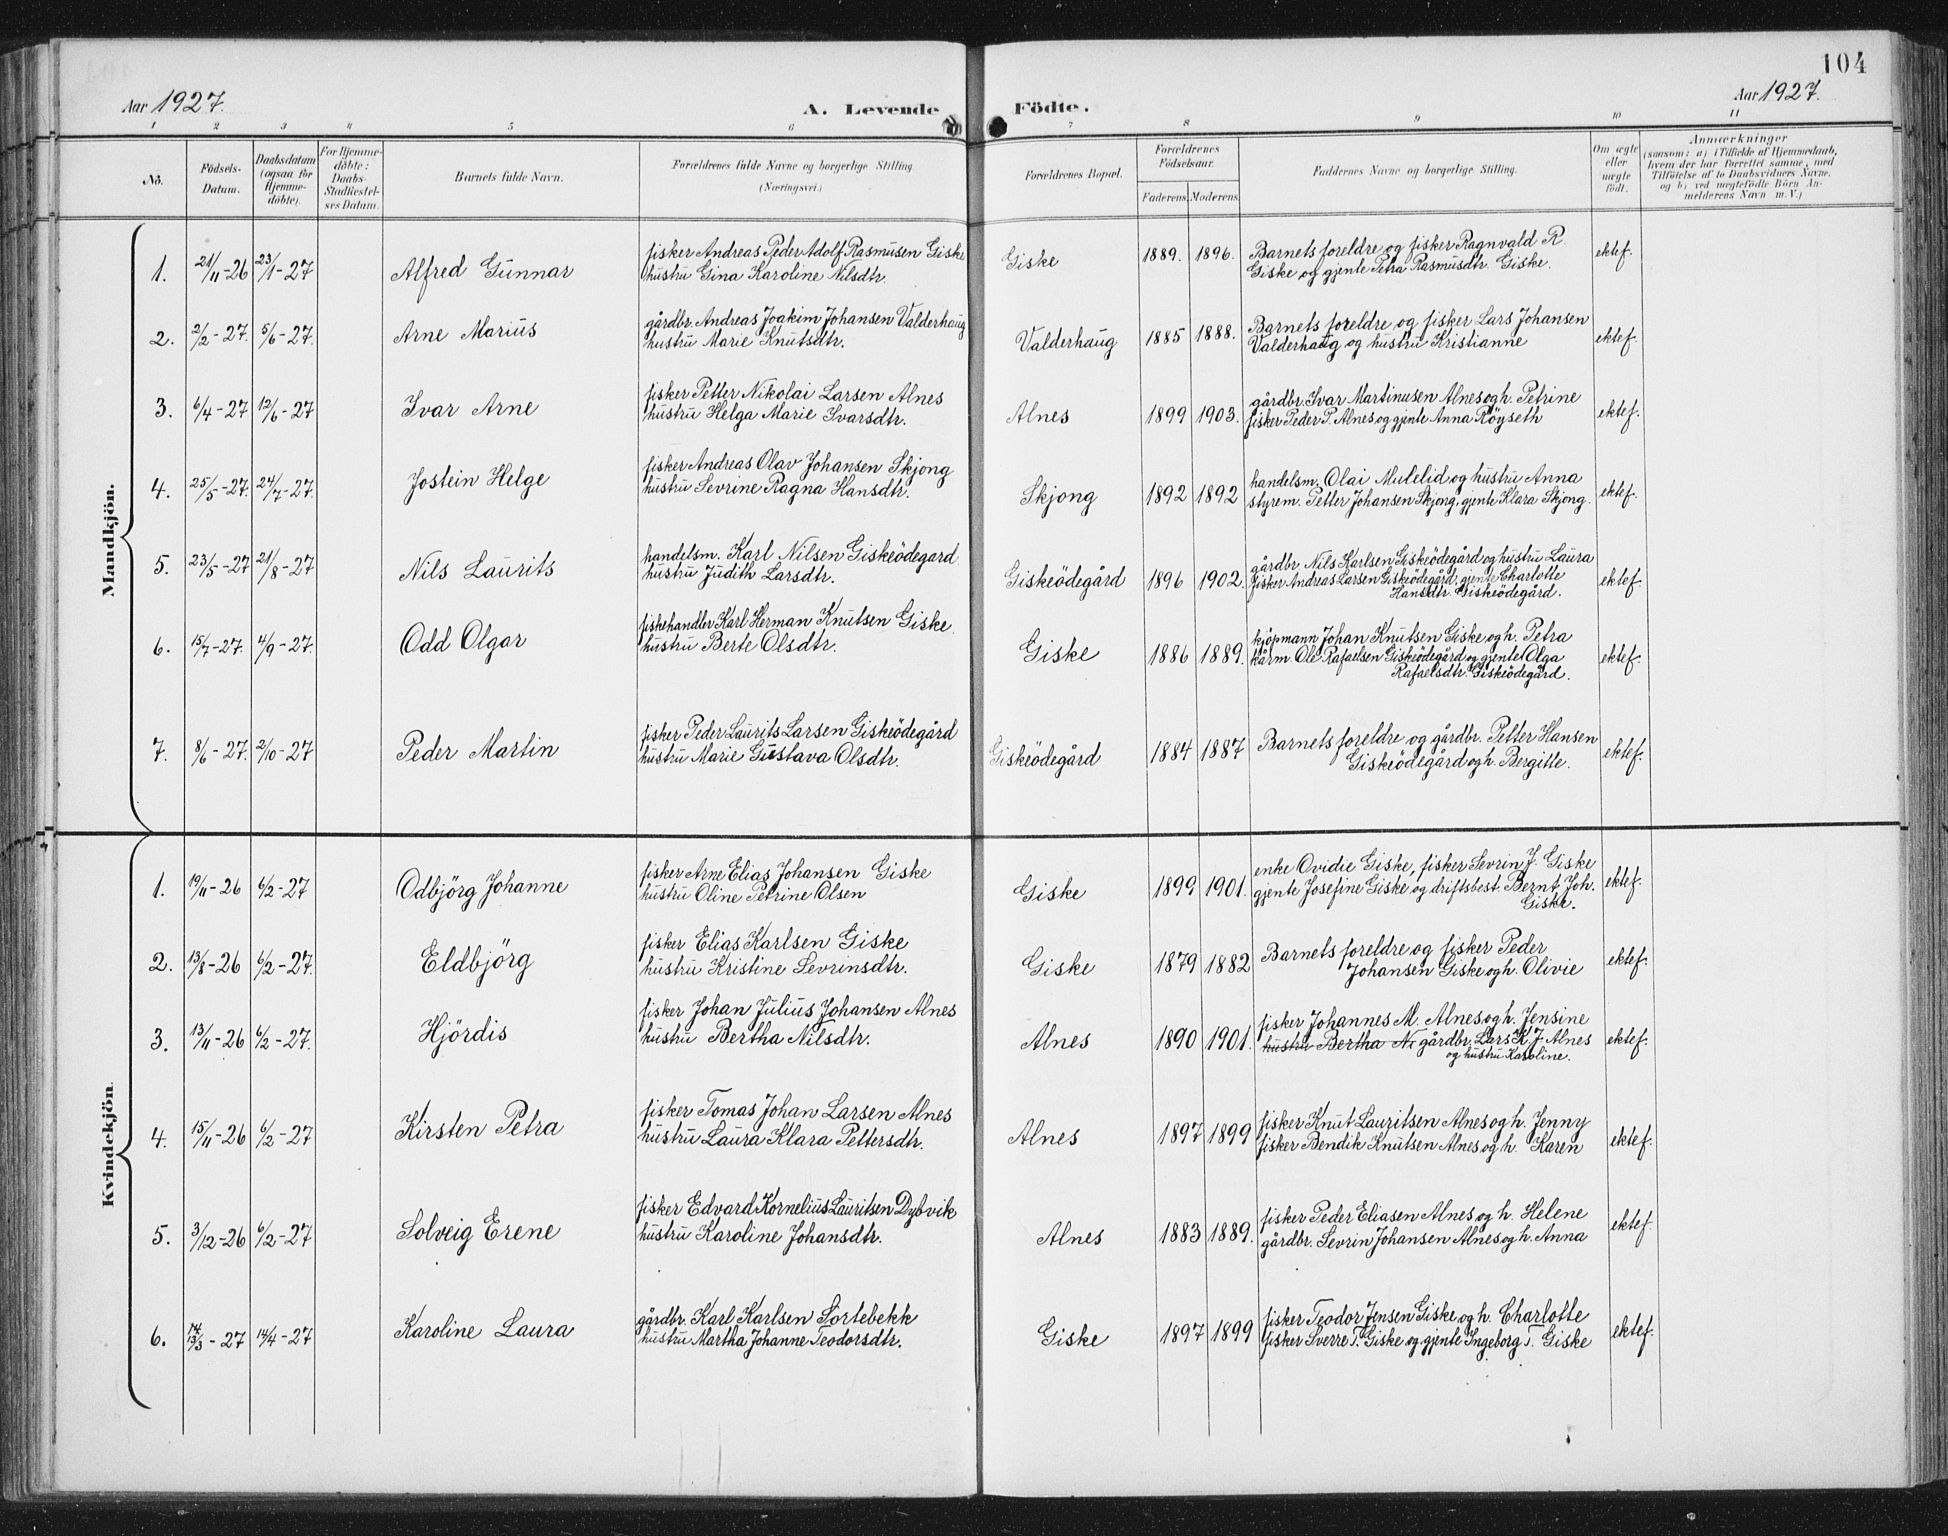 104
Aar 1927.
A. Levende
Födte.
Aar 1927.
1 2 3 4 5 6 7 8 9 10 11
No.
Födsels-
Datum.
Daabsdatum
(ogsaa for
Hjemme-
döbte).
For Hjemme-
döbte:
Daabs-
Stadfæstel-
ses Datum.
Barnets fulde Navn.
Forældrenes fulde Navne og borgerlige Stilling.
(Næringsvei.)
Forældrenes Bopæl.
Forældrenes
Födselsaar.
Faderens. Moderens.
Faddernes Navne og borgerlige Stilling.
Om ægte
eller
uægte
födt.
Anmærkninger
(saasom: a) i Tilfælde af Hjemmedaab,
hvem der har forrettet samme, med
Tilföielse af to Daabsvidners Navne.
og b) ved uægtefödte Börn An-
melderens Navn m. V.)
Mandkjön.
1. 21/11-26 23/1-27 Alfred Gunnar
fisker Andreas Peder Adolf Rasmusen Giske
hustru Gina Karoline Nilsdtr.
Giske 1889. 1896.
Barnets foreldre og fisker Ragnvald R.
Giske og gjente Petra Rasmusdtr. Giske.
ektef.
2. 2/2-27. 5/6-27. Arne Marius
gårdbr. Andreas Joakim Johansen Valderhaug
hustru Marie Knutsdtr.
Valderhaug 1885 1888.
Barnets foreldre og fisker Lars Johansen
Valderhaug og hustru Kristianne
ektef.
3. 6/4-27 12/6-27 Ivar Arne
fisker Petter Nikolai Larsen Alnes
hustru Helga Marie Ivarsdtr.
Alnes 1899 1903.
gårdbr. Ivar Martinusen Alnes og h. Petrine
fisker Peder P. Alnes og gjente Anna Röyseth
ektef.
4. 25/5-27. 24/7-27. Jostein Helge
fisker Andreas Olav Johansen Skjong
hustru Sevrine Ragna Hansdtr.
Skjong 1892 1892
handelsm. Olai Mulelid og hustru Anna
styrem. Petter Johansen Skjong, gjente Klara Skjong.
ektef.
5. 23/5-27 21/8-27 Nils Laurits
handelsm. Karl Nilsen Giskeödegard
hustru Judith Larsdtr.
Giskeödegård 1896 1902.
gårdbr. Nils Karlsen Giskeödegård og hustru Laura
fisker Andreas Larsen Giskeödegård, gjente Charlotte
Hansdtr. Giskeödegård.
ektef.
6. 15/7-27. 4/9-27. Odd Olgar
fiskehandler Karl Herman Knutsen Giske
hustru Berte Olsdtr.
Giske 1886 1889.
kjöpmann Johan Knutsen Giske og h. Petra
kårm. Ole Rafaelsen Giskeödegård og gjente Olga
Rafaelsdtr. Giskeödegård.
ektef.
7. 8/6-27. 2/10-27 Peder Martin
fisker Peder Laurits Larsen Giskeödegård
hustru Marie Gustava Olsdtr.
Giskeödegård 1884 1887
Barnets foreldre og gårdbr. Petter Hansen
Giskeödegård og h. Bergitte.
ektef.
Kvindekjön.
1. 19/11-26 6/2-27 Odbjörg Johanne
fisker Arne Elias Johansen Giske
hustru Oline Petrine Olsen
Giske 1899 1901.
enke Ovidie Giske, fisker Sevrin J. Giske
gjente Josefine Giske og driftsbest. Bernt Joh.
Giske.
ektef.
2. 13/8-26 6/2-27. Eldbjörg
fisker Elias Karlsen Giske
hustru Kristine Sevrinsdtr.
Giske 1879 1882
Barnets foreldre og fisker Peder
Johansen Giske og h. Olivie
ektef.
3. 13/11-26 6/2-27. Hjördis
fisker Johan Julius Johansen Alnes
hustru Bertha Nilsdtr.
Alnes 1890 1901.
fisker Johannes M. Alnes og h. Jensine
hustru Bertha N. gårdbr. Lars K. J. Alnes
og hustru Karoline.
ektef.
4. 15/11-26 6/2-27 Kirsten Petra
fisker Tomas Johan Larsen Alnes
hustru Laura Klara Pettersdtr.
Alnes 1897 1899
fisker Knut Lauritsen Alnes og h. Jenny
fisker Bendik Knutsen Alnes og h. Karen
ektef.
5. 3/12-26 6/2-27 Solveig Erene
fisker Edvard Kornelius Lauritsen Dybvik
hustru Karoline Johansdtr.
Alnes 1883 1889.
fisker Peder Eliasen Alnes og h. Helene
gårdbr. Sevrin Johansen Alnes og h. Anna
ektef.
6. 13/3-27 14/4-27 Karoline Laura
gårdbr. Karl Karlsen Sortebekk
hustru Martha Johanne Teodorsdtr.
Giske 1897 1899
fisker Teodor Jensen Giske og h. Charlotte
fisker Sverre T. Giske og gjente Ingeborg T. Giske
ektef.